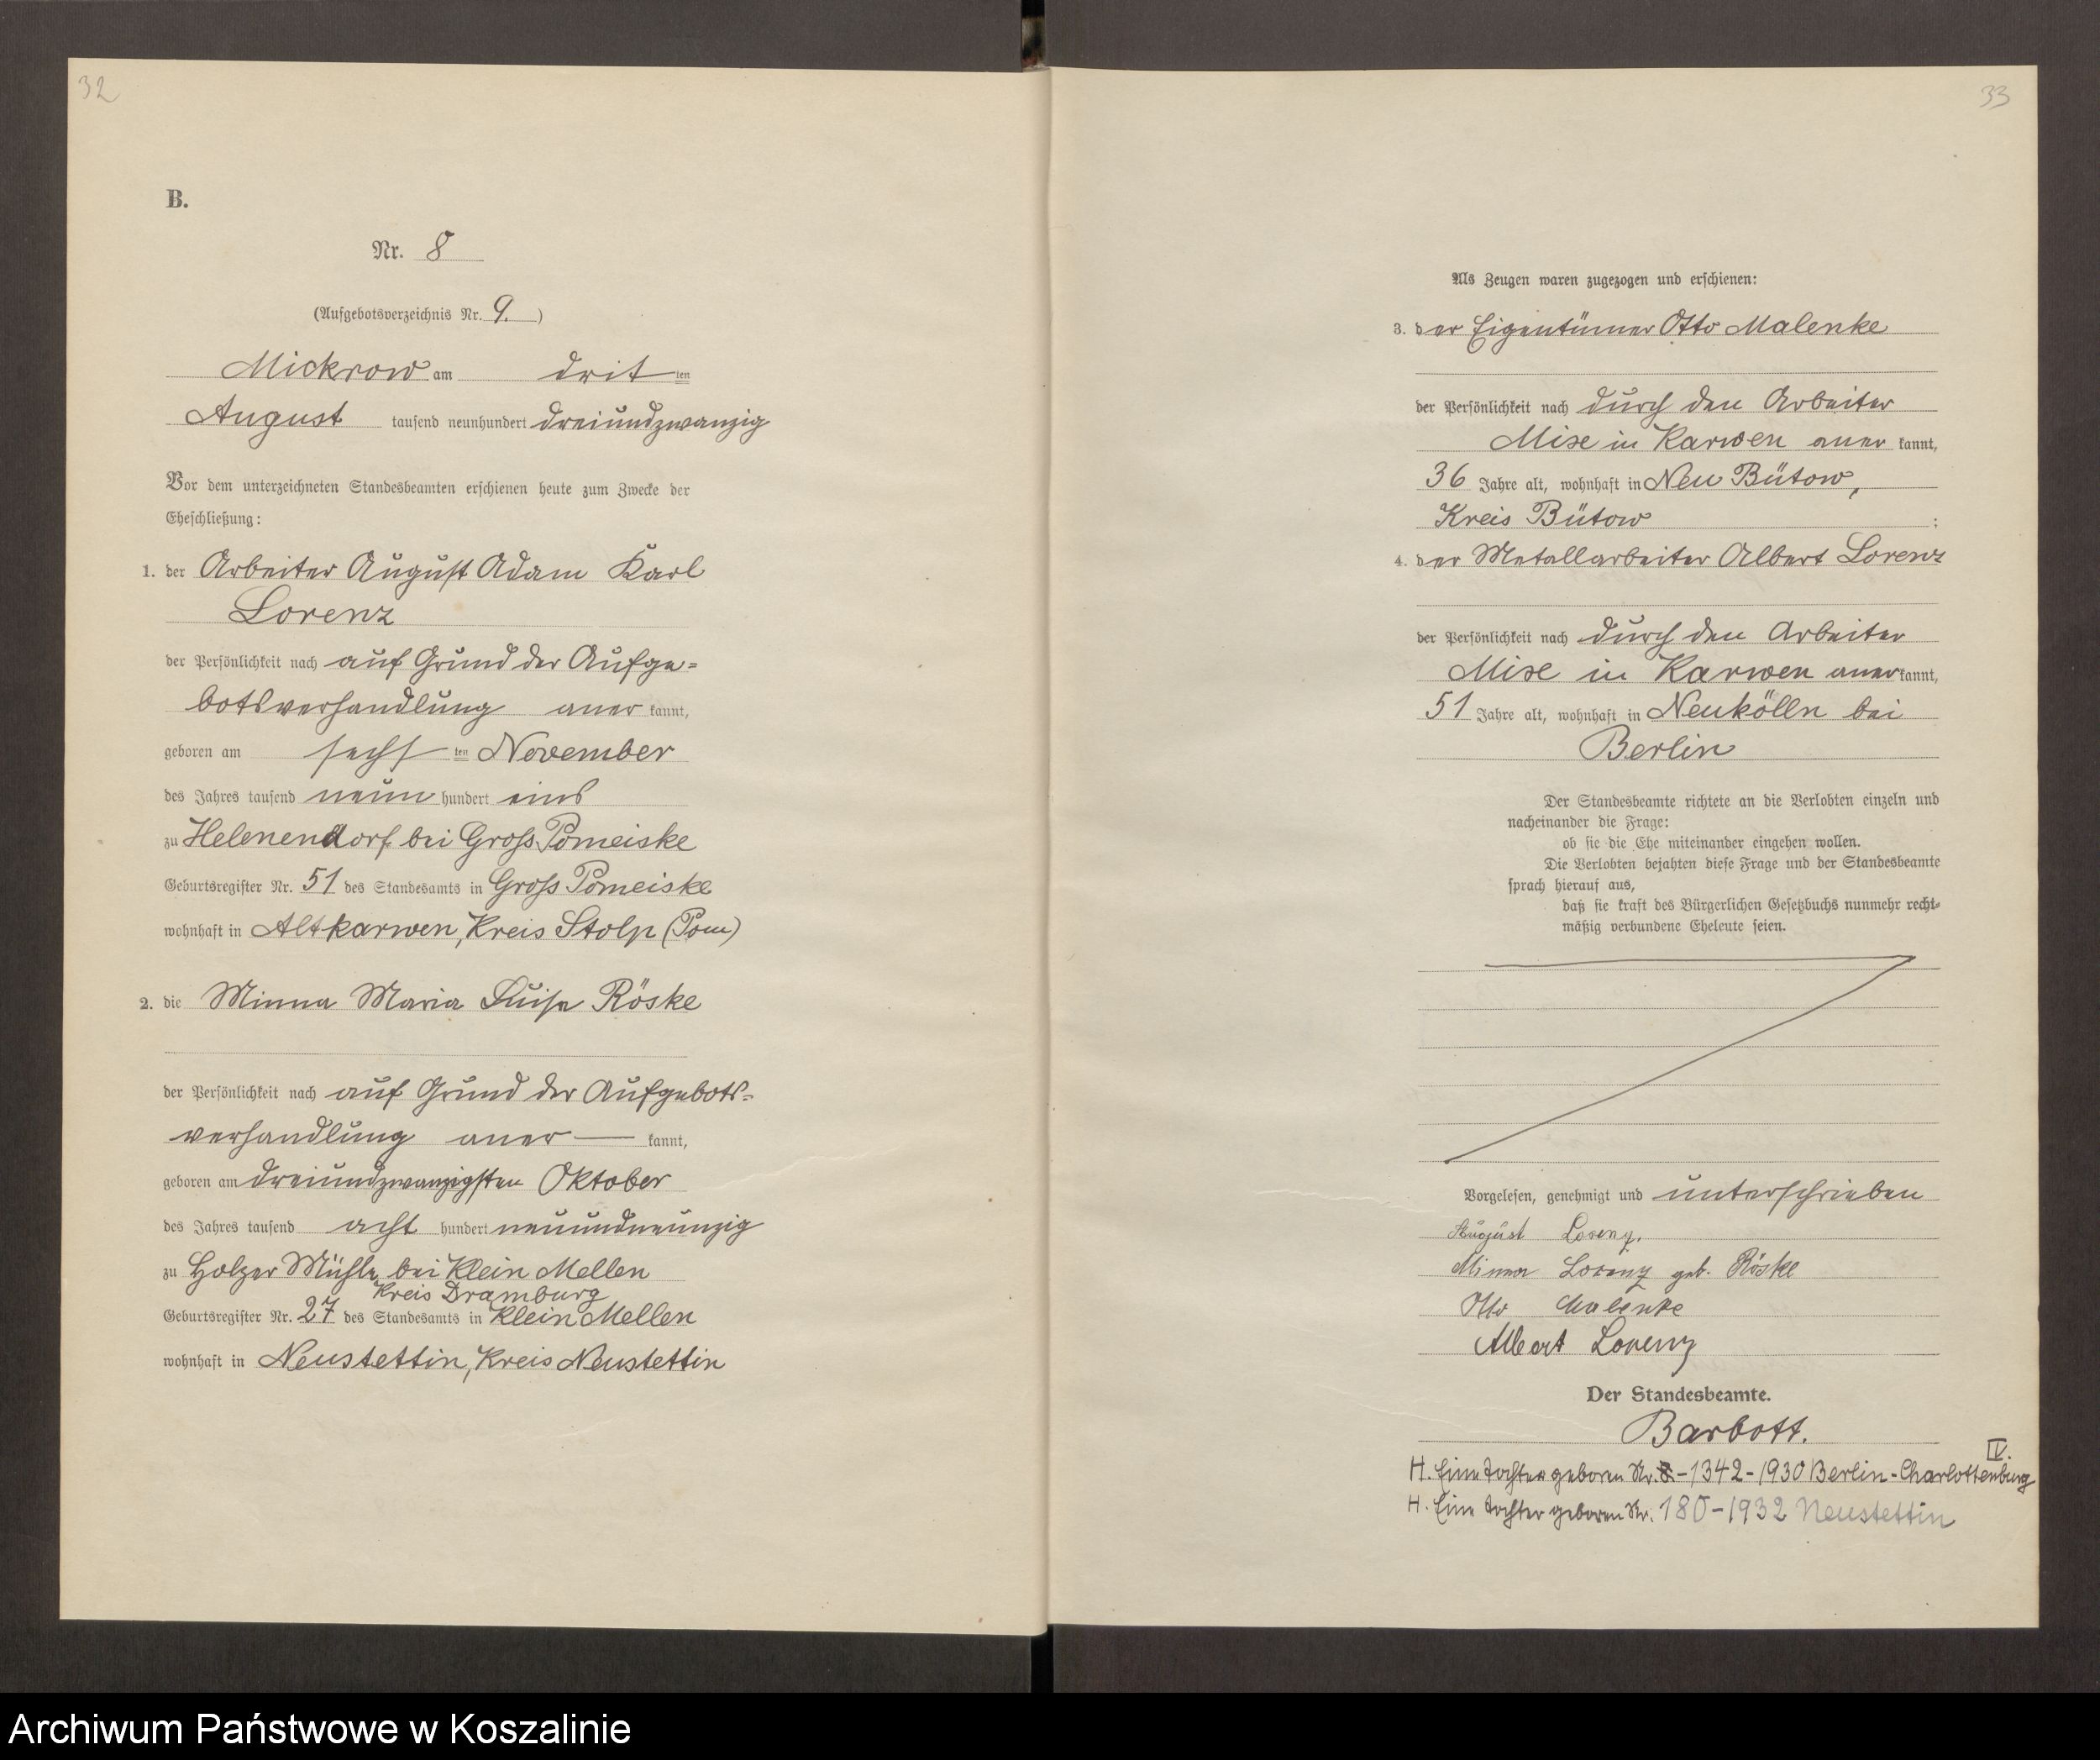 32
B.
Nr. 8
(Aufgebotsverzeichnis Nr. 9.)
Mickrow am dritten
August tausend neunhundert dreiundzwanzig
Vor dem unterzeichneten Standesbeamten erschienen heute zum Zwecke der
Eheschließung:
1. der Arbeiter August Adam Karl
Lorenz
der Persönlichkeit nach auf Grund der Aufge=
botsverhandlung aner kannt,
geboren am sechsten November
des Jahres tausend neun hundert eins
zu Helenendorf bei Gross Pomeiske
Geburtsregister Nr. 51 des Standesamts in Gross Pomeiske
wohnhaft in Altkarwen, Kreis Stolp (Pom)
2. die Minna Maria Luise Röske
der Persönlichkeit nach auf Grund der Aufgebots=
verhandlung aner — kannt,
geboren am dreiundzwanzigsten Oktober
des Jahres tausend acht hundert neuundneunzig
zu Holzer Mühle bei Klein Mellen
Kreis Dramburg
Geburtsregister Nr. 27 des Standesamts in Klein Mellen
wohnhaft in Neustettin, Kreis Neustettin
33
Als Zeugen waren zugezogen und erschienen:
3. der Eigentümer Otto Malenke
der Persönlichkeit nach durch den Arbeiter
Mise in Karwen aner kannt,
36 Jahre alt, wohnhaft in Neu Bütow,
Kreis Bütow ;
4. der Metallarbeiter Albert Lorenz
der Persönlichkeit nach durch den Arbeiter
Mise in Karwen aner kannt,
51 Jahre alt, wohnhaft in Neukölln bei
Berlin
Der Standesbeamte richtete an die Verlobten einzeln und
nacheinander die Frage:
ob sie die Ehe miteinander eingehen wollen.
Die Verlobten bejahten diese Frage und der Standesbeamte
sprach hierauf aus,
daß sie kraft des Bürgerlichen Gesetzbuchs nunmehr recht=
mäßig verbundene Eheleute seien.
Vorgelesen, genehmigt und unterschrieben
August Lorenz.
Minna Lorenz geb. Röske
Otto Malenke
Albert Lorenz
Der Standesbeamte.
Barbott.
IV.
H. Eine Tochter geboren Nr. 1342-1930 Berlin-Charlottenburg
H. Eine Tochter geboren Nr. 180-1932 Neustettin
Archiwum Państwowe w Koszalinie